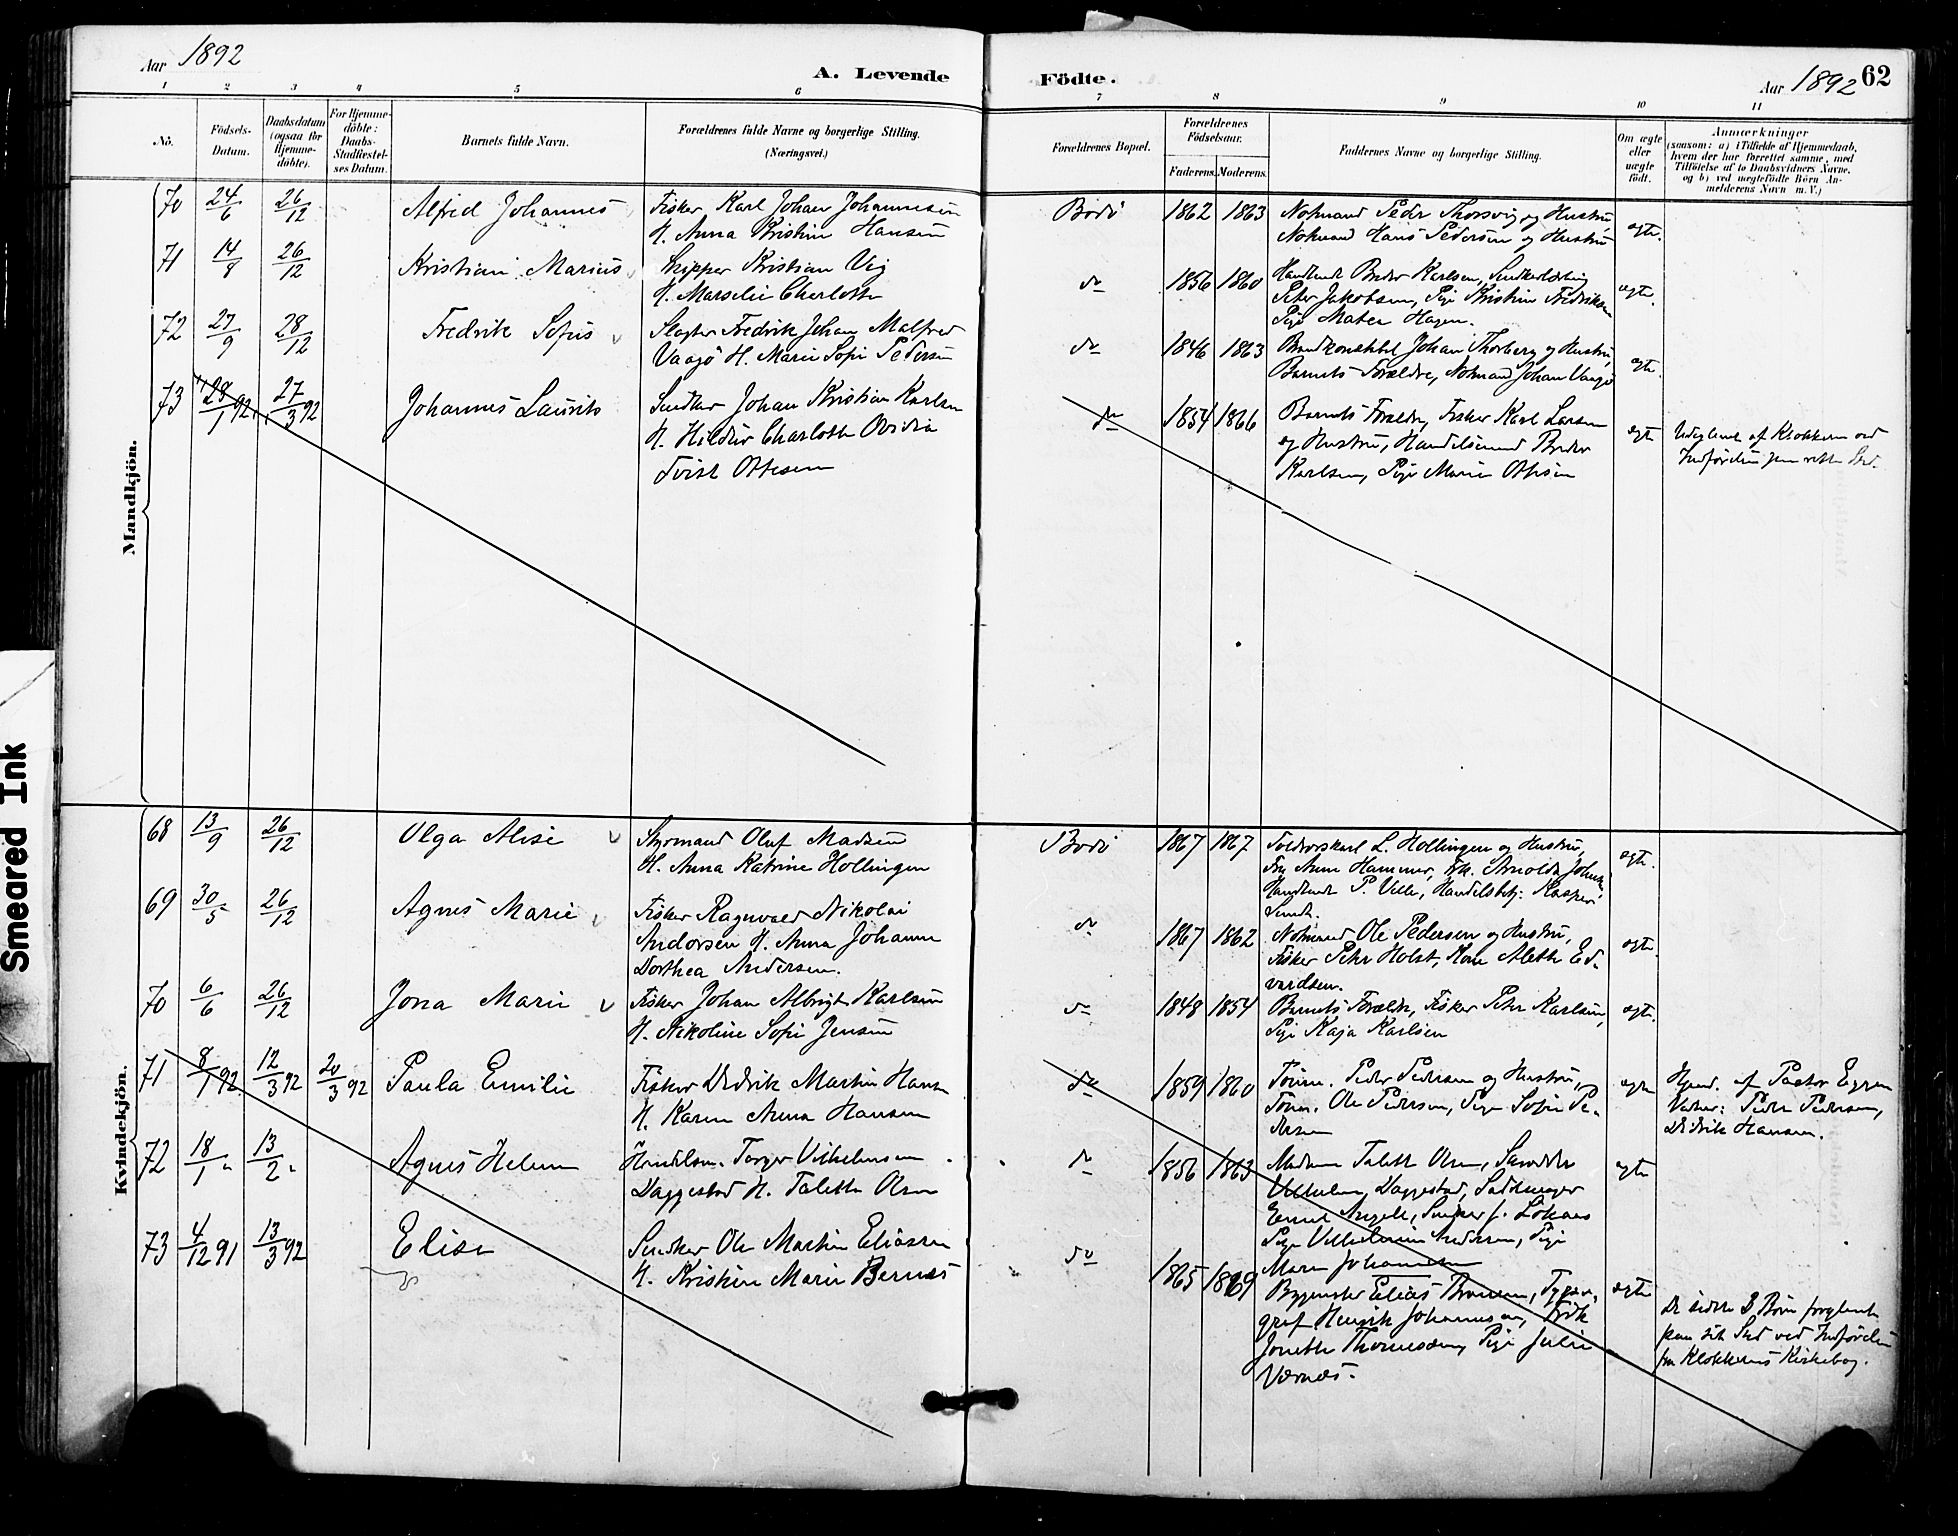 Aar 1892
A. Levende
Födte.
Aar 1892 62
1 2 3 4 5 6 7 8 9 10 11
No.
Födsels-
Datum.
Daabsdatum
(ogsaa for
Hjemme-
döbte).
For Hjemme-
döbte:
Daabs-
Stadfæstel-
ses Datum.
Barnets fulde Navn.
Forældrenes fulde Navne og borgerlige Stilling.
(Næringsvei.)
Forældrenes Bopæl.
Forældrenes
Födselsaar.
Faderens. Moderens.
Faddernes Navne og borgerlige Stilling.
Om ægte
eller
uægte
födt.
Anmærkninger
(saasom: a) i Tilfælde af Hjemmedaab,
hvem der har forrettet samme, med
Tilföielse af to Daabsvidners Navne,
og b) ved uægtefödte Börn An-
melderens Navn m. V.)
Mandkjön.
70 24/6 26/12 Alfred Johannes Fisker Karl Johan Johannesen
H. Anna Kristine Hansen
Bodö 1862 1863 Notmand Peder Thorsvig og Hustru,
Notmand Hans Pedersen og Hustru
ægte.
71 14/8 26/12 Kristian Marius Skipper Kristian Vig
H. Marselie Charlotte
do 1856 1860 Handlende Peder Karlsen,
Peter Jakobsen, Pige Kristine Fredriksen
Pige Matea Hagen.
ægte.
72 27/9 28/12 Fredrik Sofus Slagter Fredrik Johan Malfred
Vaagö H. Marie Sofie Pedersen
do 1846 1863 Brandkonstabel Johan Thorberg og Hustru,
Barnets Forældre, Notmand Johan Vaagö
ægte.
73 28/1 92 27/3 92 Johannes Laurits Snedker Johan Kristian Karlsen
H. Hildur Charlotte Ovidia
Tvist Ottesen
do 1854 1866 Barnets Forældre, Fisker Karl Larsen
og Hustru, Handelsmand Peder
Karlsen, Pige Marie Ottesen
ægte Udeglemt af Klokkeren ved
Indförelse paa rette Sted.
Kvindekjön.
68 13/9 26/12 Olga Alise Styrmand Oluf Madsen
H. Anna Katrine Hollingen
Bodö 1867 1867 Toldvorskarl L. Hollingen og Hustru,
Fru Anne Hammer, Frk. Arnolda
Handlende P. Ville, Handelsbetj. Kasper
ægte.
69 30/5 26/12 Agnes Marie Fisker Ragnvald Nikolai
Andorsen H. Anna Johanna
Dorthea Andersen.
do 1867 1862 Notmand Ole Pedersen og Hustru,
Fisker Peter Holst, Kone Alette Ed-
vardsen.
ægte.
70 6/6 26/12 Jona Marie Fisker Johan Albrigt Karlsen
H. Nikoline Sofie Jensen
do 1848 1854 Barnets Forældre, Fisker Peter Karlsen,
Pige Kaja Karlsen
ægte.
71 8/1 92 12/3 92 20/3 92 Paula Emilie Fisker Didrik Martin Hansen
H. Karen Anna Hansen
do 1859 1860 Tömm. Peder Pedersen og Hustru,
Tömm. Ole Pedersen, Pige Sofie Pe-
dersen
ægte Hjemd. af Pastor Eggen
Vidner: Peder Pedersen,
Didrik Hansen.
72 18/1 " 13/2 " Agnes Helene Handelsm. Torger Vilhelmsen
Daggestad H. Talette Olsen
do 1856 1863 Madame Talette Olsen,
Vilhelm Daggestad, Sadelmager
Emil Angell, Snedker J. Lokaas
Pige Vilhelmine Andersen, Pige
Maren Johannesen
ægte
73 4/12 91 13/3 92 Elise Snedker Ole Martin Eliassen
H. Kristine Marie Bernes
do 1865 1869 Bygmester Elias Thomesen, Typo-
graf Henrik Johannesen, Frök
Jonette Thomesden, Pige Julie
Værnes.
ægte De sidste 3 Börn forglemt
paa sit Sted ved Indförelse
fra Klokkerens Kirkebog.
Smeared Ink